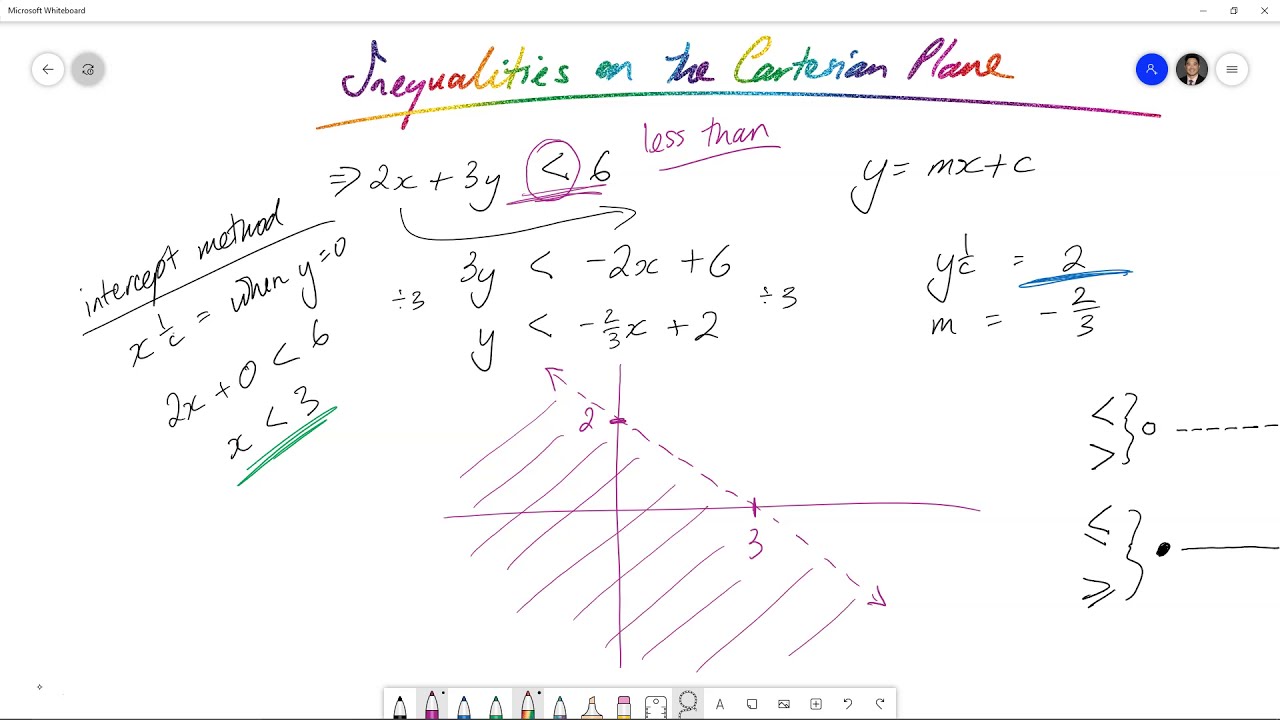 Microsoft Whiteboard
Inequalities on the Cartesian Plane
less than
⇒ 2x + 3y < 6
y = mx + c
intercept method
x int = when y=0
2x + 0 < 6
x < 3
3y < -2x + 6
÷3
÷3
y < -2/3x + 2
y int = 2
m = -2/3
2
3
<
>
≤
≥
A